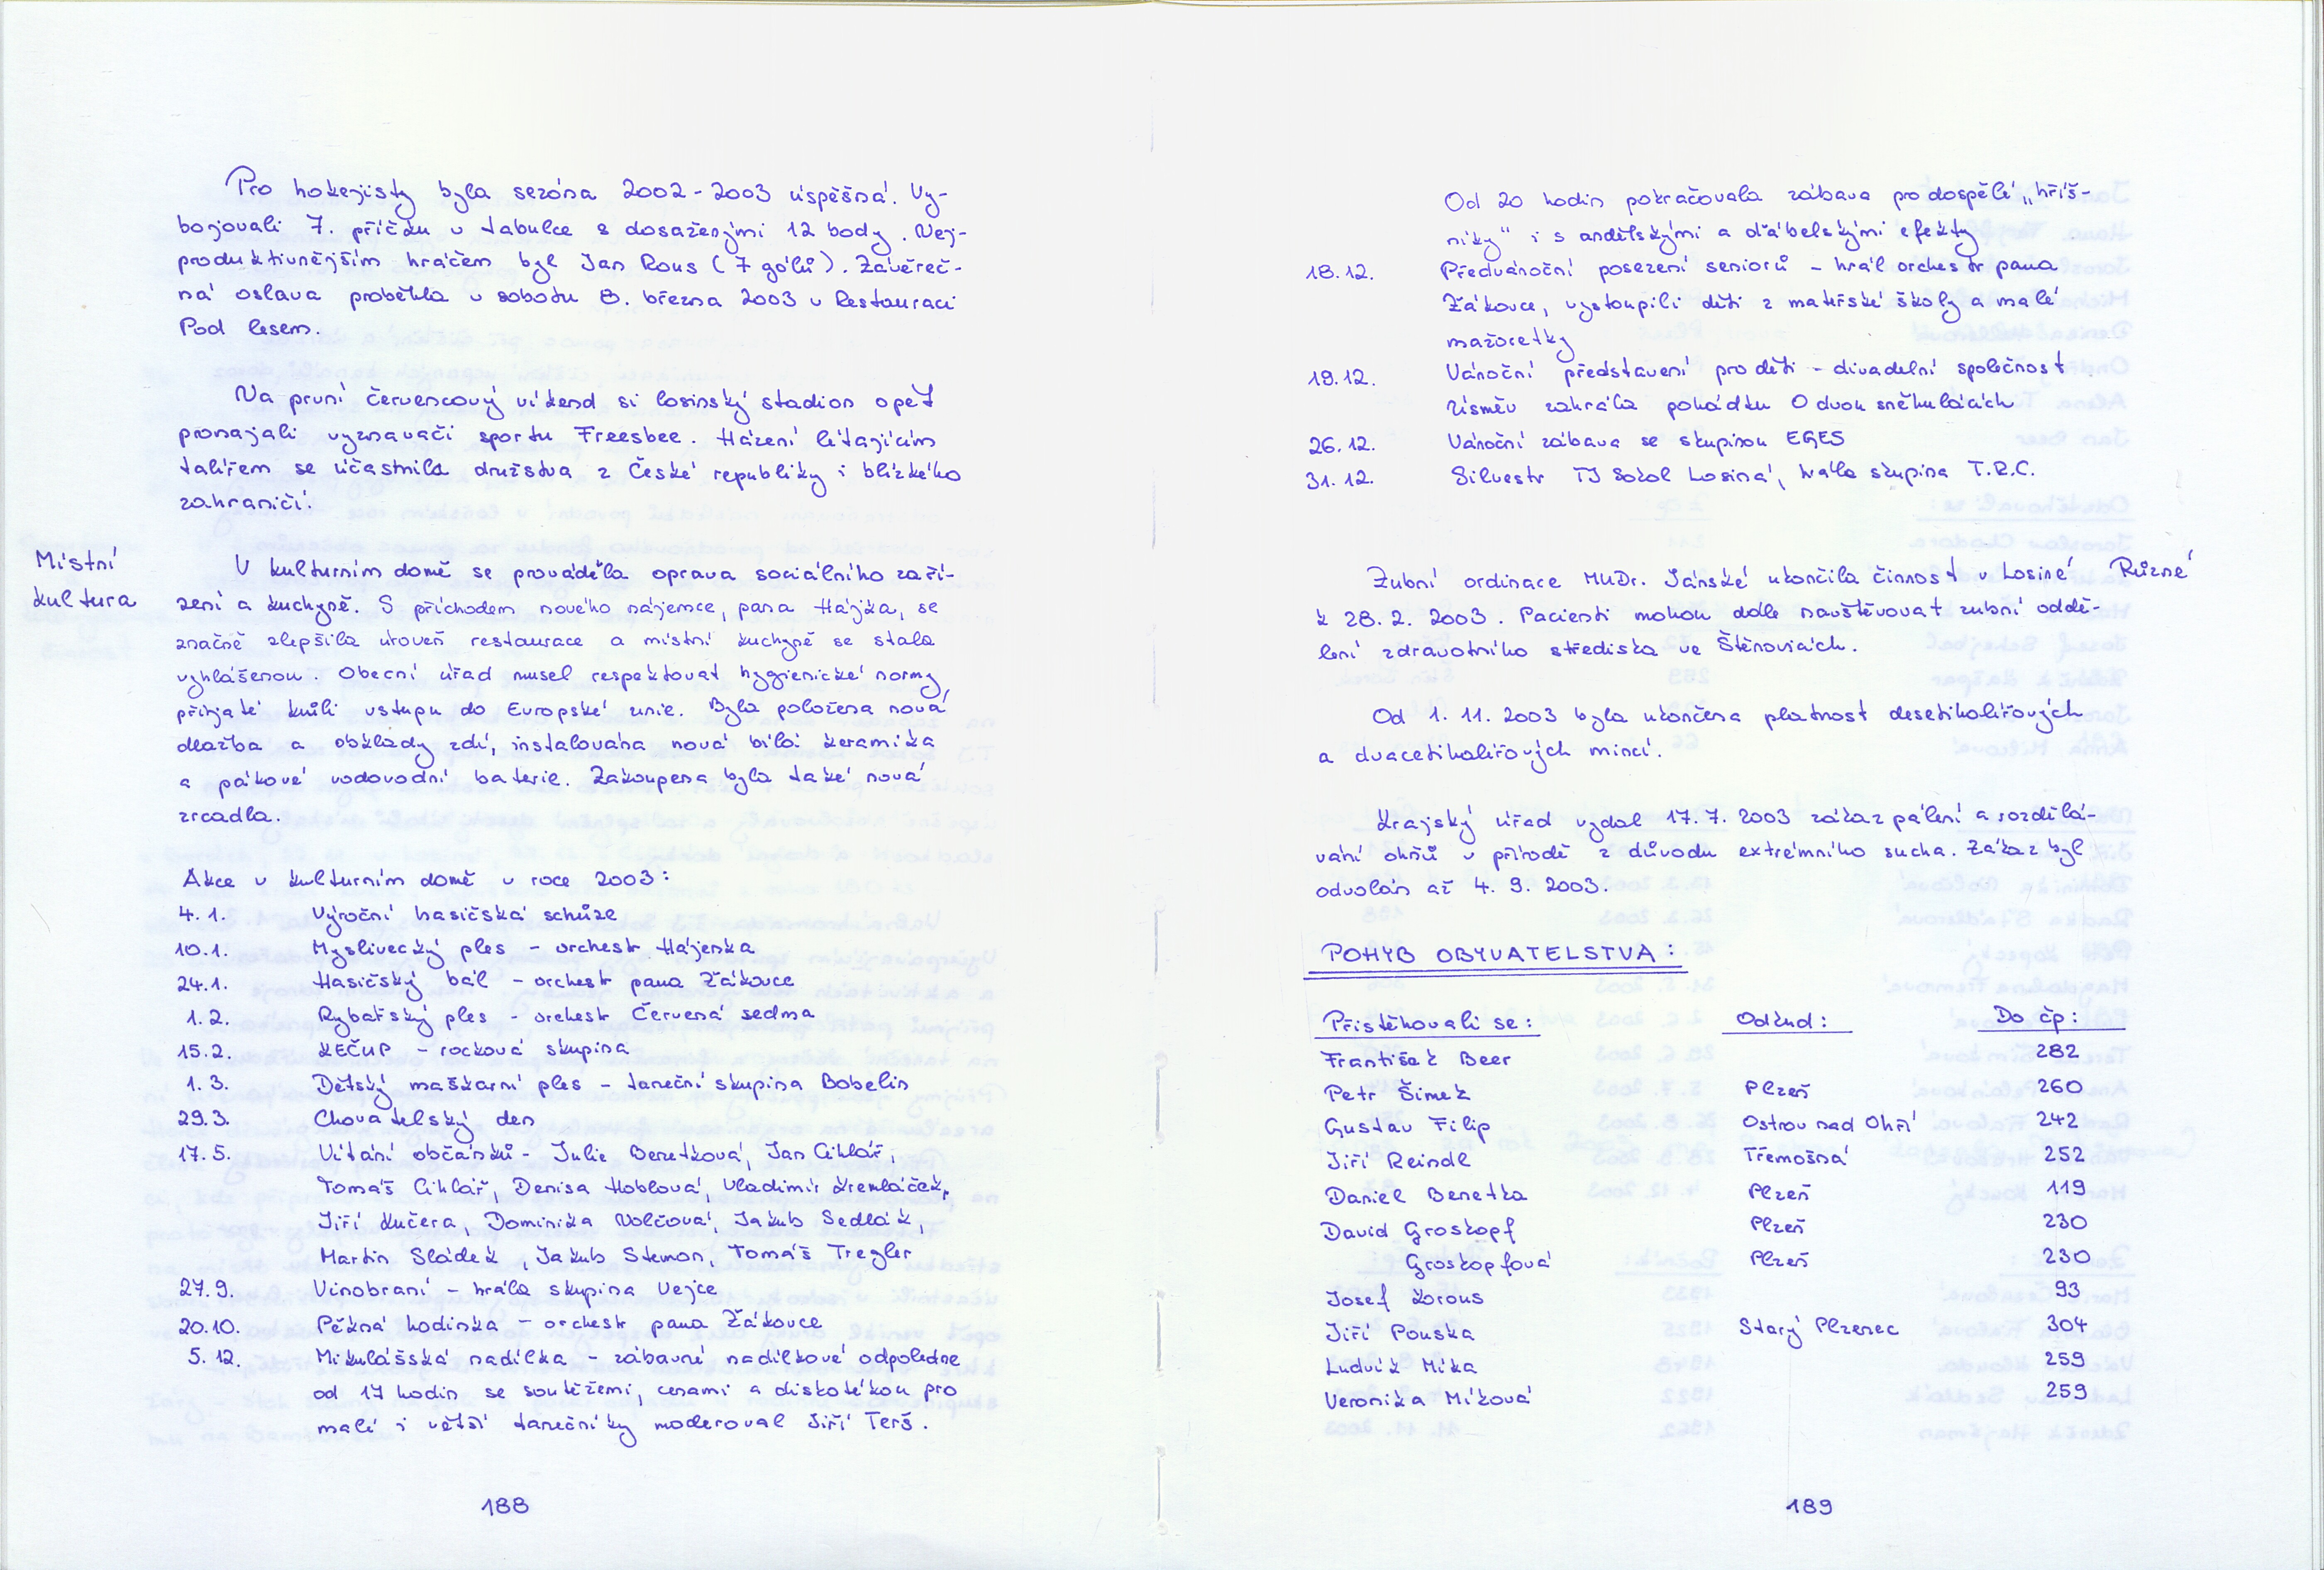 Pro hokejisty byla sezóna 2002-2003 úspěšná. Vy-
bojovali 7. příčku v tabulce s dosaženými 12 body. Nej-
produktivnějším hráčem byl Jan Rous (7 gólů). Závěreč-
ná oslava proběhla v sobotu 8. března 2003 v Restauraci
Pod lesem.
Na první červencový víkend si losinský stadion opět
pronajali vyznavači sportu Freesbee. Házení létajícím
talířem se účastnila družstva z České republiky i blízkého
zahraničí.
Místní
kultura
V kulturním domě se prováděla oprava sociálního zaří-
zení a kuchyně. S příchodem nového nájemce, pana Hájka, se
značně zlepšila úroveň restaurace a místní kuchyně se stala
vyhlášenou. Obecní úřad musel respektovat hygienické normy
přijaté kvůli vstupu do Evropské unie. Byla položena nová
dlažba a obklady zdí, instalována nová bílá keramika
a pákové vodovodní baterie. Zakoupena byla také nová
zrcadla.
Akce v kulturním domě v roce 2003:
4.1. Výroční hasičská schůze
10.1. Myslivecký ples - orchestr Hájenka
24.1. Hasičský bál - orchestr pana Žákovce
1.2. Rybářský ples - orchestr Červená sedma
15.2. KEČUP - rocková skupina
1.3. Dětský maškarní ples - taneční skupina Bobelin
29.3. Chovatelský den
17.5. Vítání občánků - Julie Benetková, Jan Cihlář,
Tomáš Cihlář, Denisa Hoblová, Vladimír Kremláček,
Jiří Kučera, Dominika Volčová, Jakub Sedlák,
Martin Sládek, Jakub Štemon, Tomáš Tregler
27.9. Vinobraní - hrála skupina Vejce
20.10. Pěkná hodinka - orchestr pana Žákovce
5.12. Mikulášská nadílka - zábavné nadílkové odpoledne
od 17 hodin se soutěžemi, cenami a diskotékou pro
malé i větší tanečníky moderoval Jiří Terš.
188
Od 20 hodin pokračovala zábava pro dospělé „hříš-
níky" i s andělskými a ďábelskými efekty
18.12. Předvánoční posezení seniorů - hrál orchestr pana
Žákovce, vystoupili děti z mateřské školy a malé
mažoretky
19.12. Vánoční představení pro děti - divadelní společnost
Úsměv zahrála pohádku O dvou sněhulácích
26.12. Vánoční zábava se skupinou EGES
31.12. Silvestr TJ Sokol Losiná, hrála skupina T.R.C.
Různé
Zubní ordinace MUDr. Jánské ukončila činnost v Losiné
k 28.2. 2003. Pacienti mohou dále navštěvovat zubní oddě-
lení zdravotního střediska ve Štěnovicích.
Od 1.11. 2003 byla ukončena platnost desetihaléřových
a dvacetihaléřových mincí.
Krajský úřad vydal 17.7. 2003 zákaz pálení a rozdělá-
vání ohňů v přírodě z důvodu extrémního sucha. Zákaz byl
odvolán až 4.9. 2003.
POHYB OBYVATELSTVA:
Přistěhovali se: Odkud: Do čp:
František Beer 282
Petr Šimek Plzeň 260
Gustav Filip Ostrov nad Ohří 242
Jiří Reindl Třemošná 252
Daniel Benetka Plzeň 119
David Groskopf Plzeň 230
Groskopfová Plzeň 230
Josef Korous 93
Jiří Pouska Starý Plzenec 304
Ludvík Mika 259
Veronika Míková 259
189